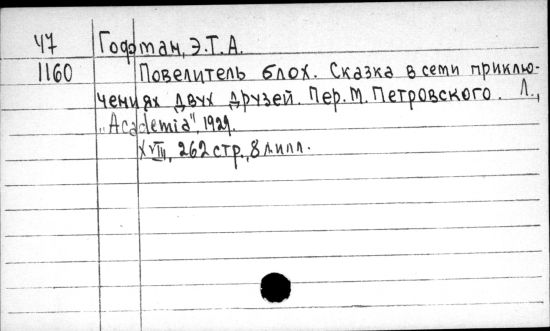 47 Гофман, Э.Т.А.
1160 Повелитель блох. Сказка в семи приклю-
чениях двух друзей. Пер. М. Петровского. Л.,
"Academia", 1929.
XVIII, 262 стр., 8 л. илл.